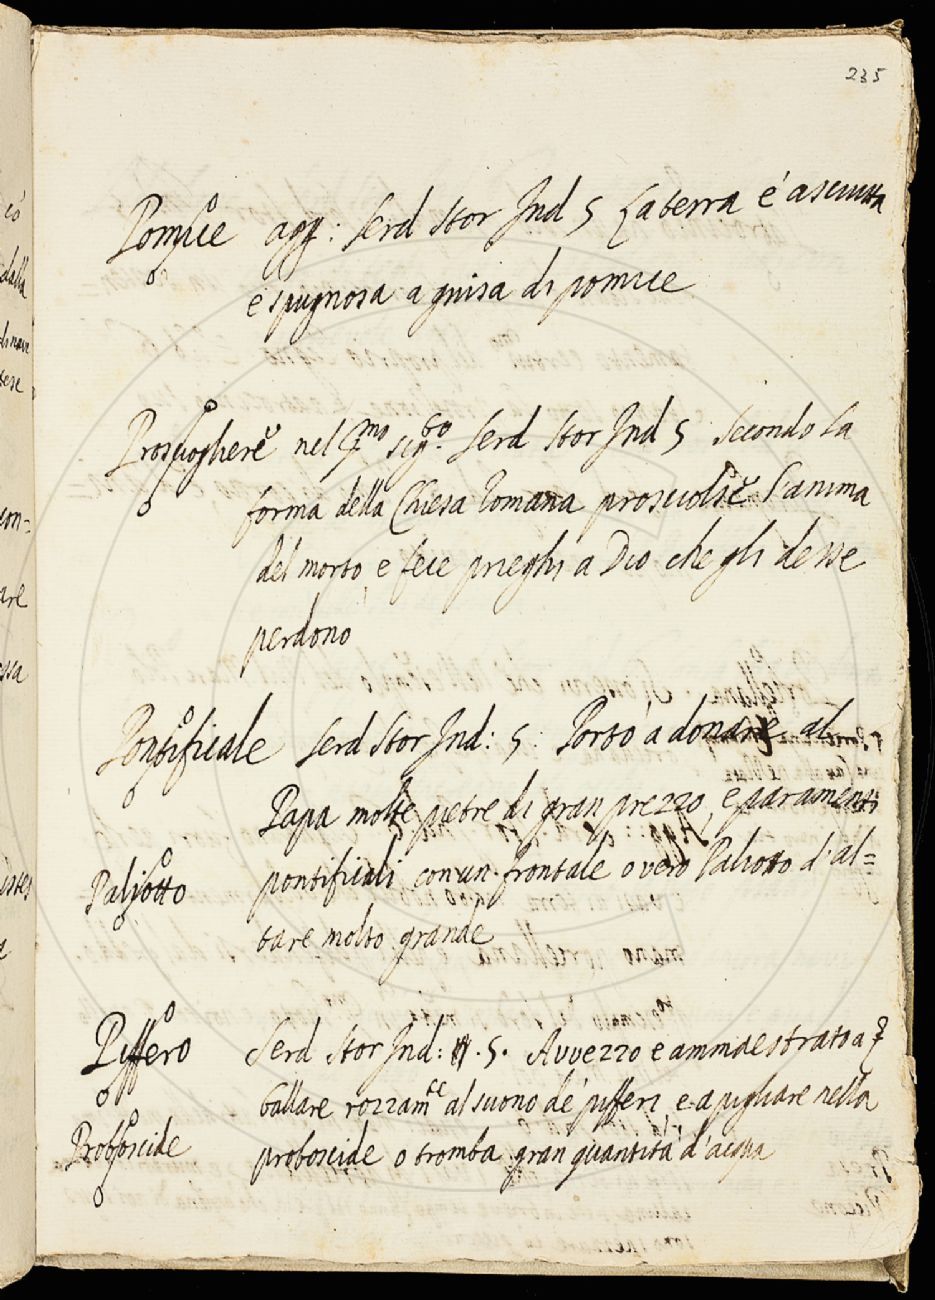 235
Pomice agg: Serd Stor Ind 5 La terra é asciutta
e spugnosa a guisa di pomice
Prosciogliere nel pmo sigto Serd Stor Ind 5 Secondo la
forma della Chiesa Romana prosciolse l'anima
del morto, e fece prieghi a Dio che gli desse
perdono
Pontificale Serd Stor Ind: 5: Portò a donare al
Papa molte pietre di gran prezzo, e paramenti
pontificali con un frontale o vero Paliotto d'al=
Paliotto
tare molto grande
Piffero Serd Stor Ind: 5. Avvezzo e ammaestrato a
ballare rozzamte al suono de' pifferi, e a pigliare nella
Proboscide proboscide o tromba gran quantità d'acqua